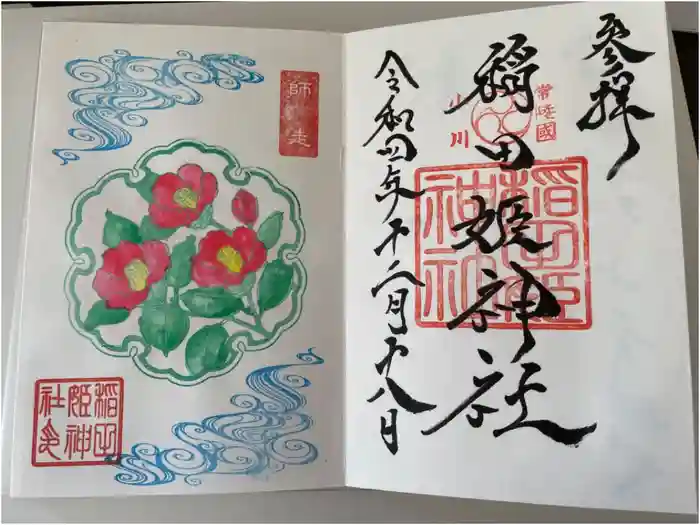 参拝
常陸國
小川
稲田姫神社
稲田姫神社
令和四年十二月十八日
師走
稲田姫神社印